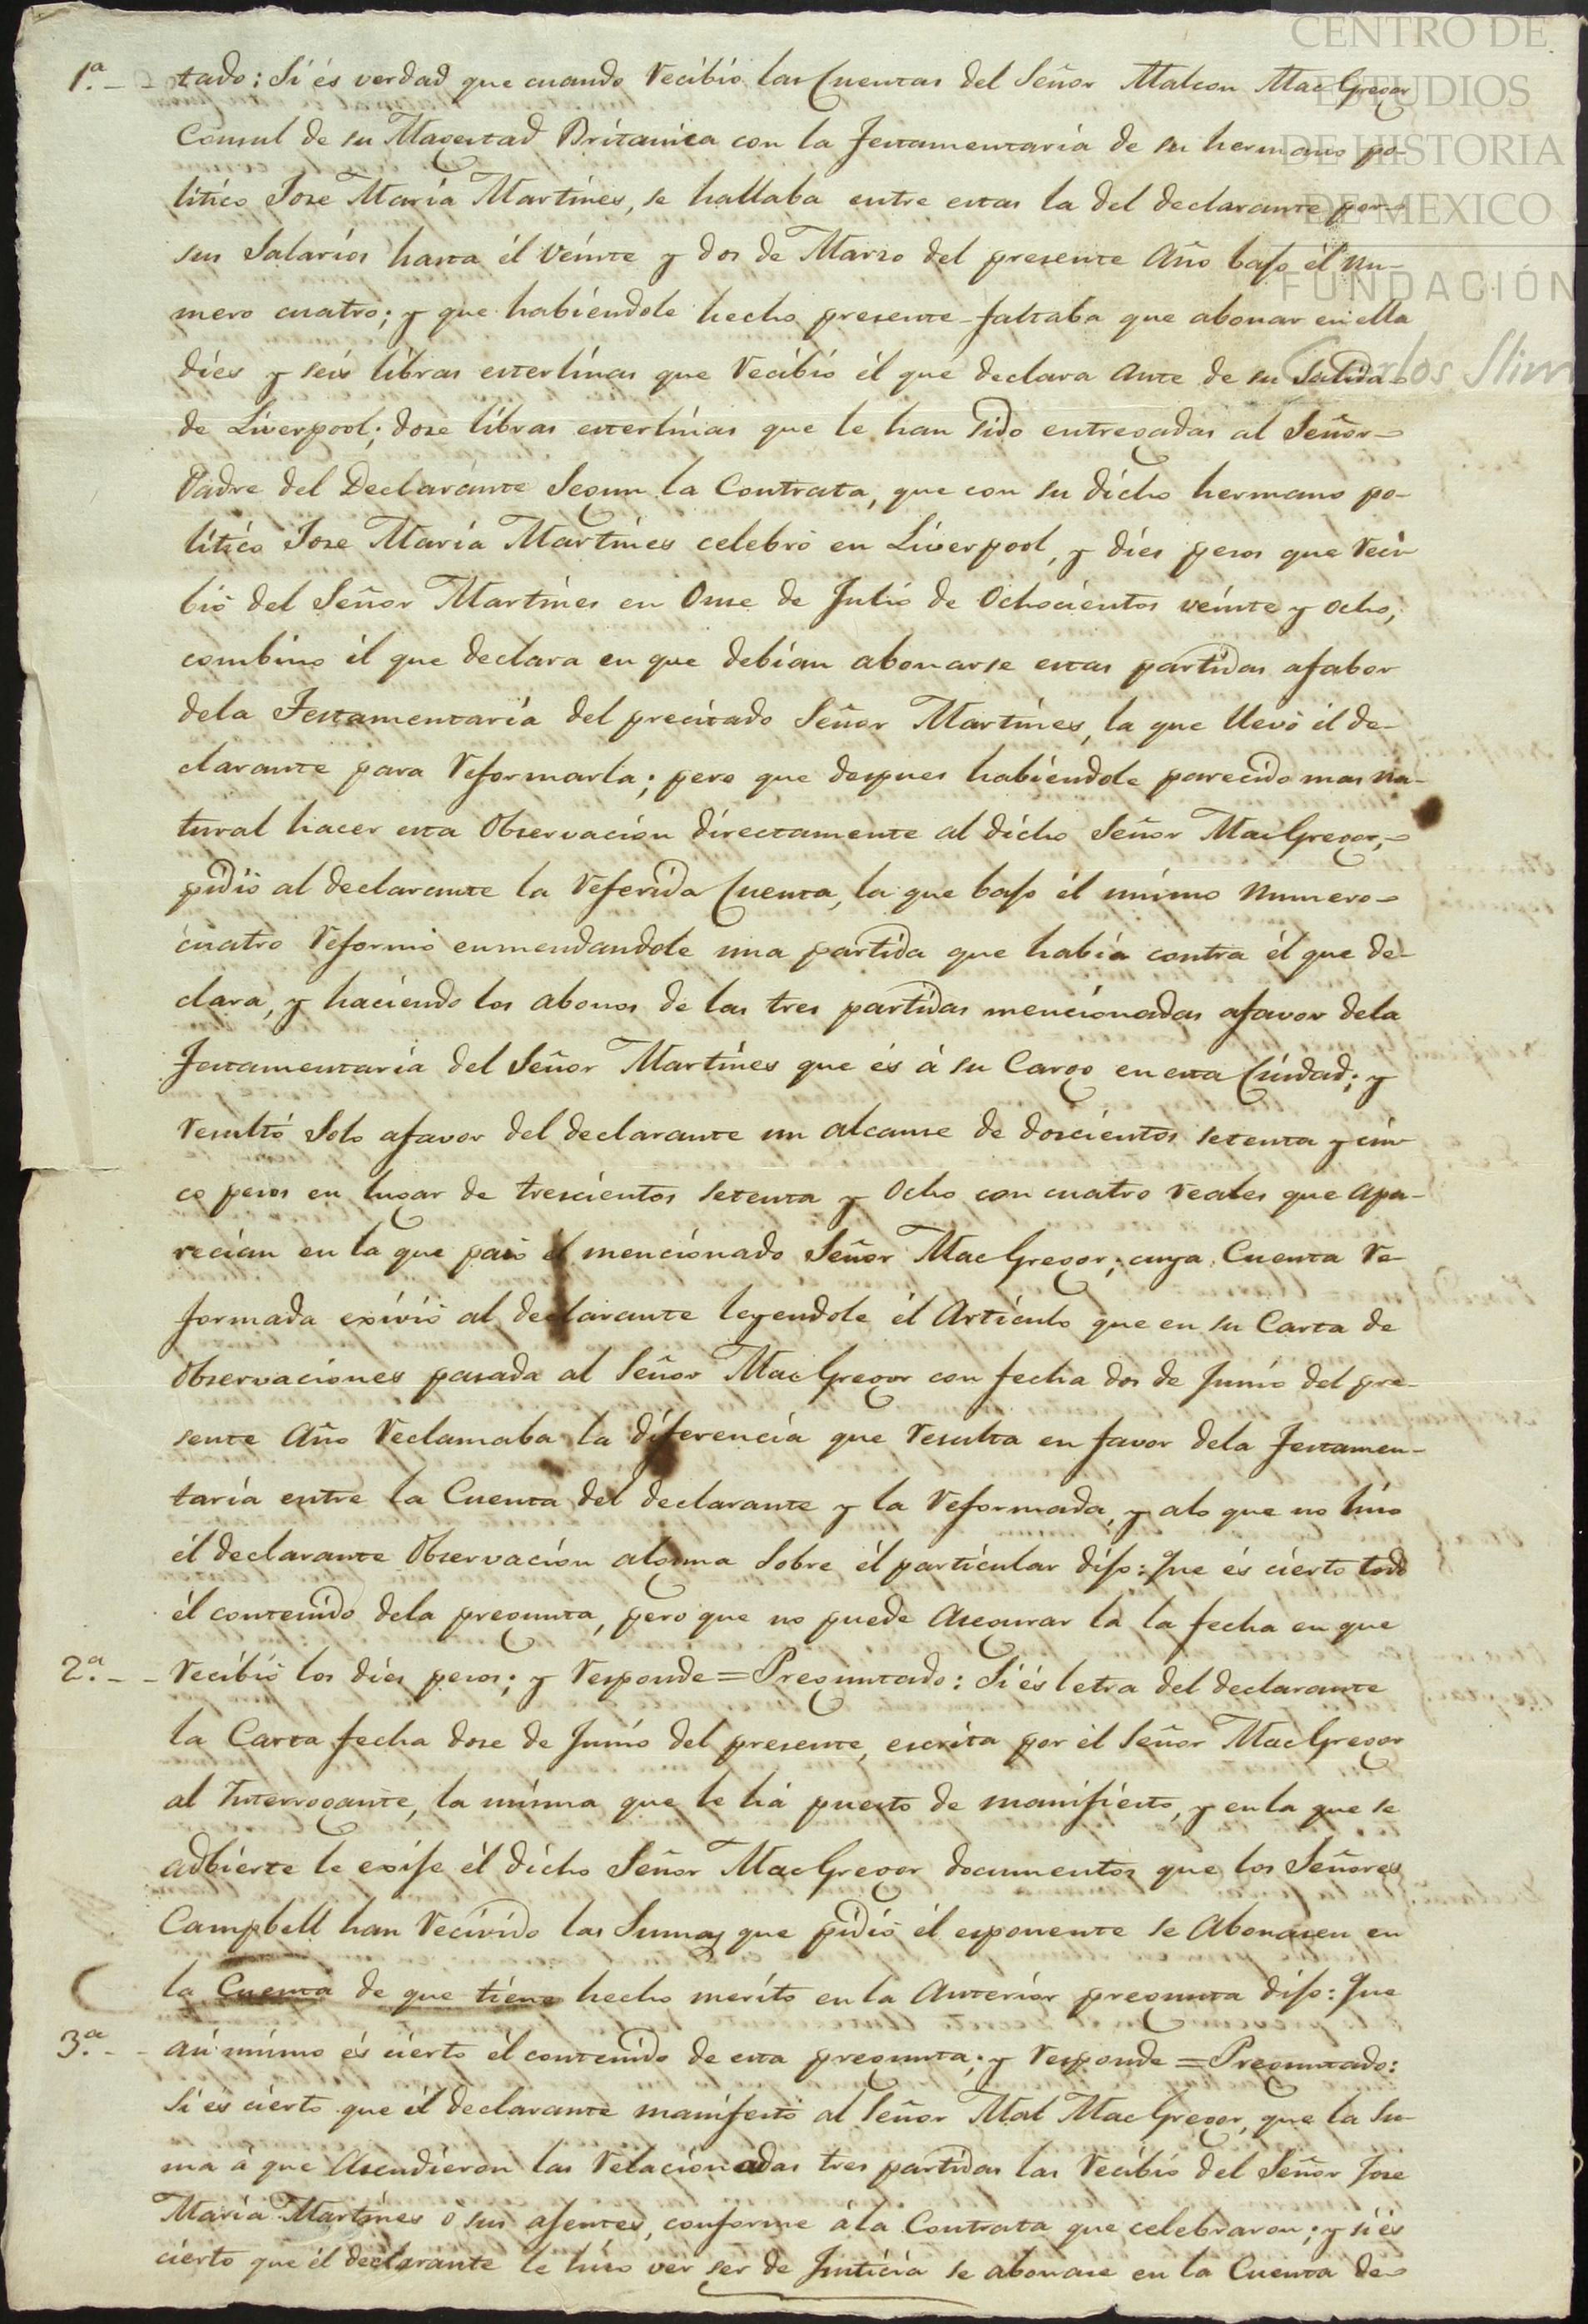 CENTRO DE
ESTUDIOS
DE HISTORIA
DE MEXICO
FUNDACIÓN
Carlos Slim
1.ª - - tado: Si és verdad que cuando recibio las Cuentas del Señor Malcon MacGregor
Consul de su Magestad Britanica con la Testamentaria de su hermano po-
litico Jose Maria Martines, se hallaba entre estas la del declarante por
sus Salarios hasta él veinte y dos de Marso del presente Año bajo él nu-
mero cuatro; y que habiendole hecho presente faltaba que abonar en ella
dies y seis libras esterlinas que recibio él que declara Ante de su Salida
de Liverpool; dose libras esterlinas que le han sido entregadas al Señor
Padre del Declarante Segun la Contrata, que con su dicho hermano po-
litico Jose Maria Martines celebró en Liverpool, y dies pesos que reci-
bió del Señor Martines en Onse de Julio de Ochocientos veinte y ocho,
combino él que declara en que debian abonarse estas partidas afabor
dela Testamentaria del precitado Señor Martines, la que llevó él de-
clarante para reformarla; pero que despues habiendole parecido mas na-
tural hacer esta Observacion directamente al dicho Señor MacGregor,
pidió al declarante la referida Cuenta, la que bajo él mismo numero
cuatro reformó enmendandole una partida que habia contra él que de-
clara, y haciendo los abonos de las tres partidas mencionadas afavor dela
Testamentaria del Señor Martines que és á su Cargo en esta Ciudad; y
resultó Solo afavor del declarante un alcanse de doscientos setenta y cin-
co pesos en lugar de trescientos setenta y Ocho con cuatro reales que apa-
recian en la que pasó el mencionado Señor MacGregor; cuya Cuenta re-
formada exivió al declarante leyendole él Articulo que en su Carta de
Observaciones pasada al Señor MacGregor con fecha dos de Junio del pre-
sente Año reclamaba la diferencia que resulta en favor dela Testamen-
taria entre la Cuenta del declarante y la reformada, y alo que no hiso
él declarante Observacion alguna Sobre él particular dijo: Que és cierto todo
él contenido dela pregunta, pero que no puede Asegurar la la fecha en que
2.ª - - recibió los dies pesos; y responde = Preguntado: Si és letra del declarante
la Carta fecha dose de Junio del presente, escrita por él Señor MacGregor
al Interrogante, la misma que le há puesto de manifiesto, y en la que se
adbierte le exije él dicho Señor MacGregor documentos que los Señores
Campbell han recivido las Sumas que pidió él esponente se Abonasen en
la Cuenta de que tiene hecho merito en la Anterior pregunta dijo: Que
3.ª - - asi mismo és cierto él contenido de esta pregunta; y responde = Preguntado:
Si és cierto que él declarante manifestó al Señor Mal MacGregor, que la Su-
ma á que Asendieron las relacionadas tres partidas las recibió del Señor Jose
Maria Martines ó sus ajentes, conforme ála Contrata que celebraron; y si és
cierto que él declarante le hiso ver ser de Justicia se abonase en la Cuenta de